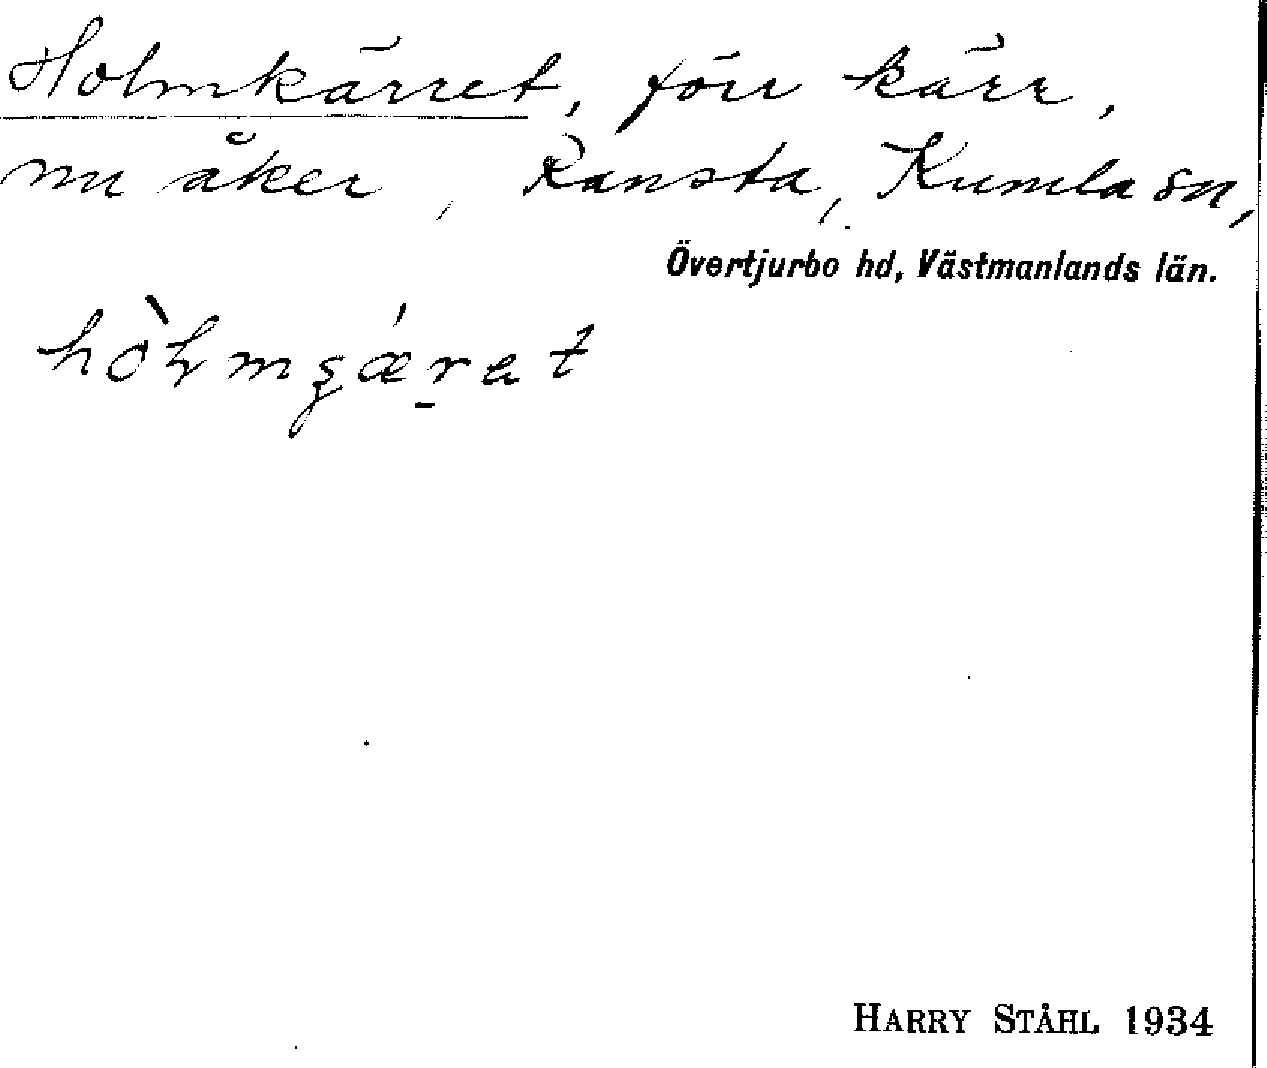 Holmkärret, förr kärr,
nu åker, Ransta, Kumla sn,
Övertjurbo hd, Västmanlands län.
HARRY STÅHL 1934